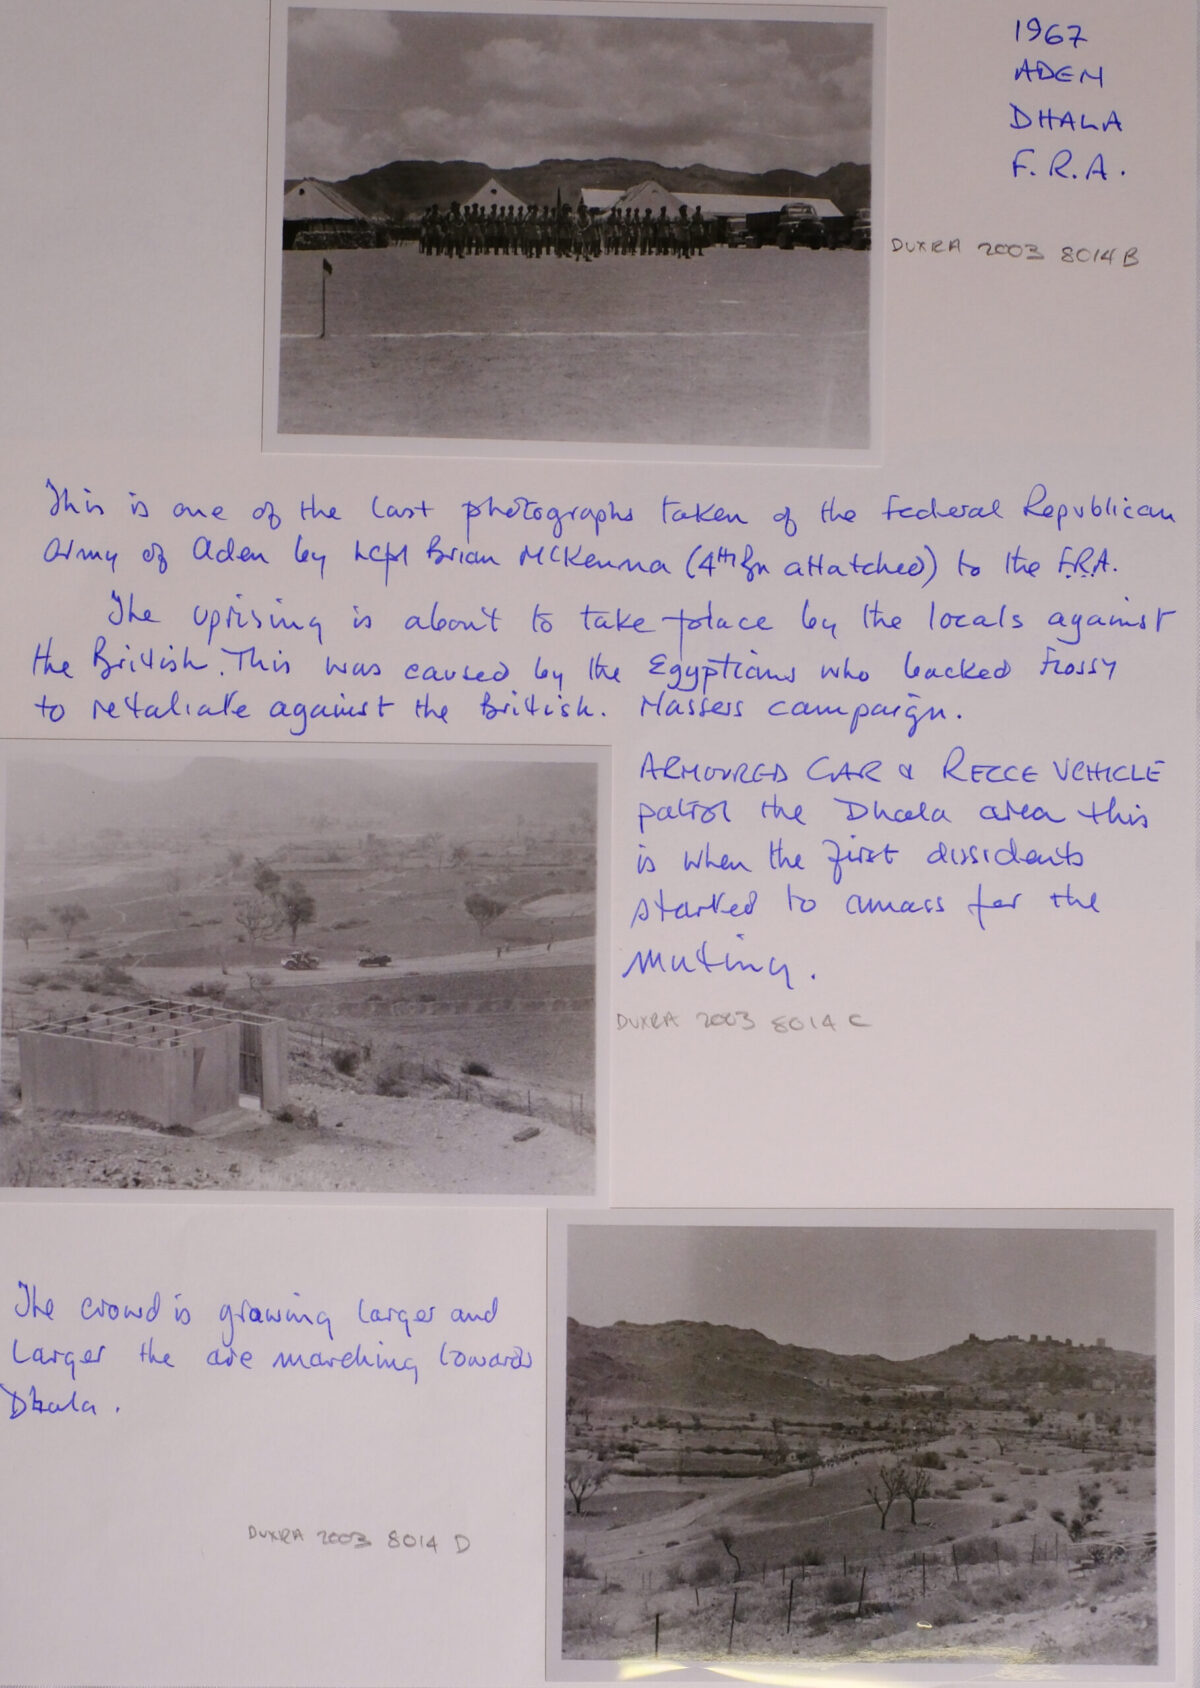 1967
ADEN
DHALA
F.R.A.
DUXRA 2003 8014 B
This is one of the last photographs taken of the Federal Republican
Army of Aden by Lcpl Brian McKenna (4th Bn attatched) to the F.R.A.
The uprising is about to take place by the locals against
the British. This was caused by the Egyptians who backed Flossy
to retaliate against the British. Nassers campaign.
ARMOURED CAR & RECCE VEHICLE
patrol the Dhala area this
is when the first dissidents
started to amass for the
mutiny.
DUXRA 2003 8014 C
The crowd is growing larger and
larger the are marching towards
Dhala.
DUXRA 2003 8014 D